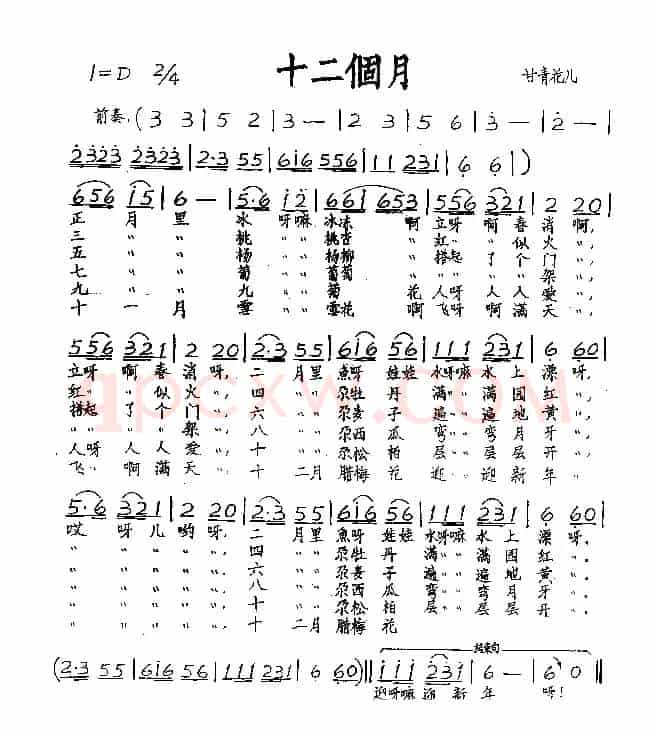 十二個月
1=D 2/4
甘青花儿
前奏:(3 3|5 2|3 —|2 3|5 6|3 —|2 —|
2323 2323|2·3 55|6i6 556|111 231|6 6)|
656 i5|6 —|5·6 i2|661 653|556 321|2 20|
正 月 里 冰 呀嘛 冰冻 啊 立呀 啊春 消 啊,
三 〃 〃 桃 〃 〃 桃杏 〃 红〃 似 火 〃,
五 〃 〃 杨 〃 〃 杨柳 〃 搭起 了个 门 〃,
七 〃 〃 葡 〃 〃 葡萄 〃 〃 〃 架 〃,
九 〃 〃 九 〃 〃 菊 花 人呀 人人 爱 〃,
十 一 月 雪 〃 〃 雪花 啊 飞呀 啊满 天 〃,
556 321|2 20|2·3 55|6i6 556|111 231|6 60|
立呀 啊春 消 呀, 二 月里 魚呀 娃娃 水呀嘛 水上 漂 呀,
红〃 似 火 〃, 四 〃 〃 尕牡 丹 满〃 〃 满 园 红 〃,
搭起 了个 门 〃, 六 〃 〃 尕麦 子 遍〃 〃 遍 地 黄 〃,
〃 〃 架 〃, 八 〃 〃 尕西 瓜 弯〃 〃 弯 月 牙 〃,
人呀 人人 爱 〃, 十 〃 〃 尕松 柏 层〃 〃 层 层 开 〃,
飞〃 啊满 天 〃, 十 二月 腊梅 花 迎〃 〃 迎 新 年 〃
5·6 321|2 20|2·3 55|6i6 556|111 231|6 60|
哎 呀儿 哟 呀, 二 月里 魚呀 娃娃 水呀嘛 水上 漂 呀.
〃 〃 〃 〃 〃, 四 〃 〃 尕牡 丹 满〃 〃 满 园 红 〃.
〃 〃 〃 〃 〃, 六 〃 〃 尕麦 子 遍〃 〃 遍 地 黄 〃.
〃 〃 〃 〃 〃, 八 〃 〃 尕西 瓜 弯〃 〃 弯 月 牙 〃.
〃 〃 〃 〃 〃, 十 〃 〃 尕松 柏 层〃 〃 层 层 开 〃.
〃 〃 〃 〃 〃, 十 二月 腊梅 花
结束句
(2·3 55|6i6 556|111 231|6 60)‖iii 231|6 —|6 0‖
迎呀嘛 迎 新 年 呀!
qpcxw.COM